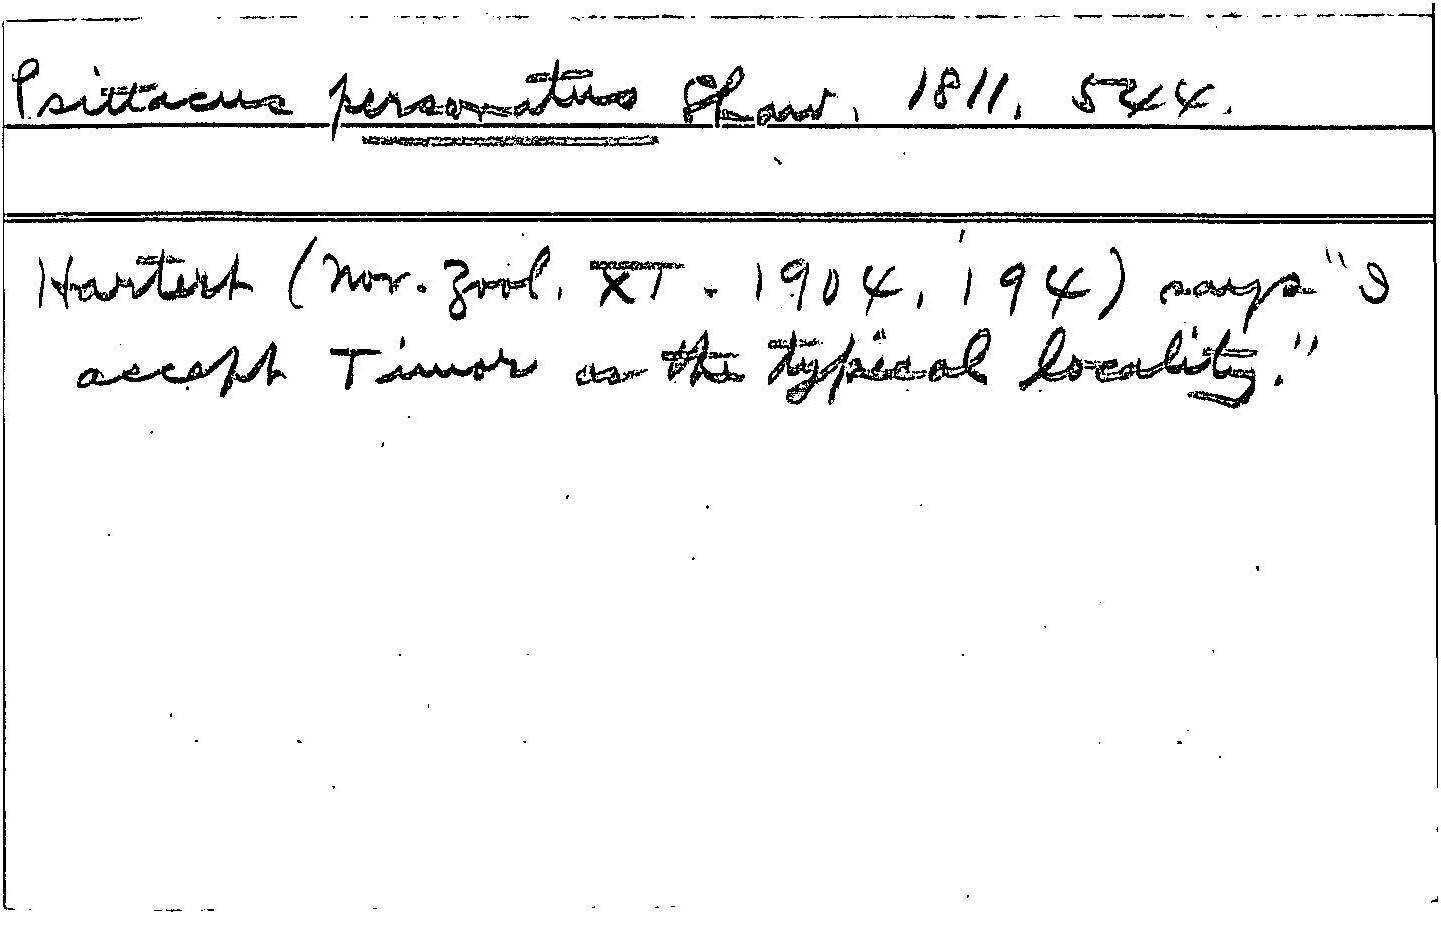 Psittacus personatus Shaw, 1811, 544.
Hartert (Nov. Zool. XI. 1904, 194) says "I
accept Timor as the typical locality."